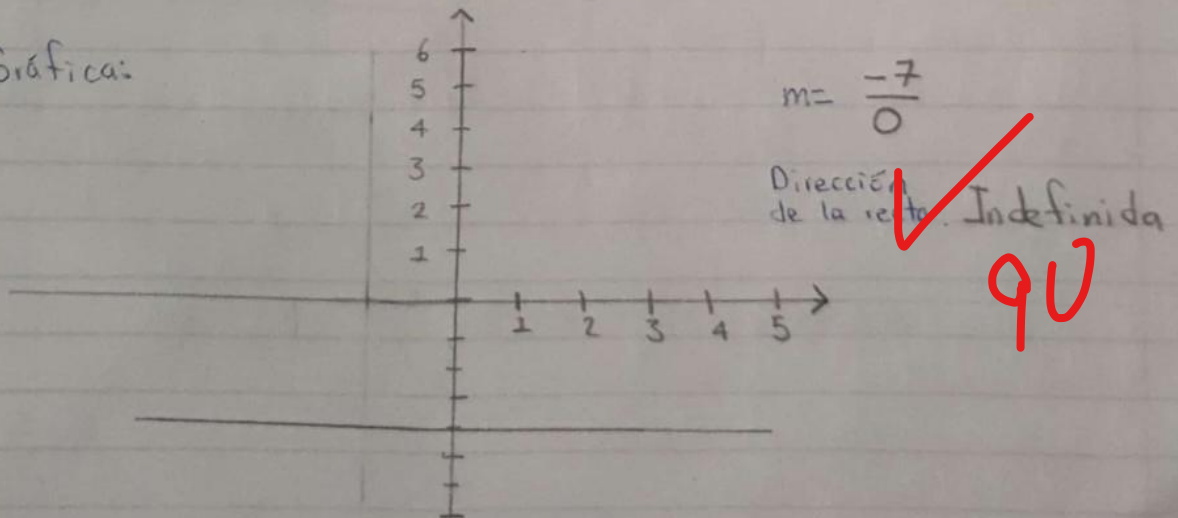 Gráfica:
6
5
4
3
2
1
1 2 3 4 5
m= -7/0
Dirección
de la recta. Indefinida
90